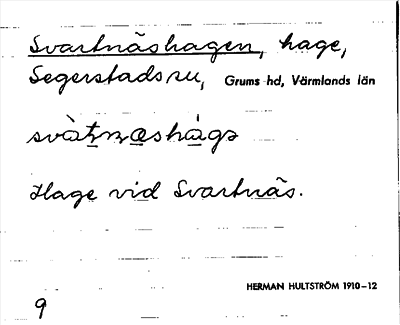 Svartnäshagen, hage,
Segerstads sn, Grums hd, Värmlands län
svàtnæshàgɘ
Hage vid Svartnäs.
HERMAN HULTSTRÖM 1910–12
9